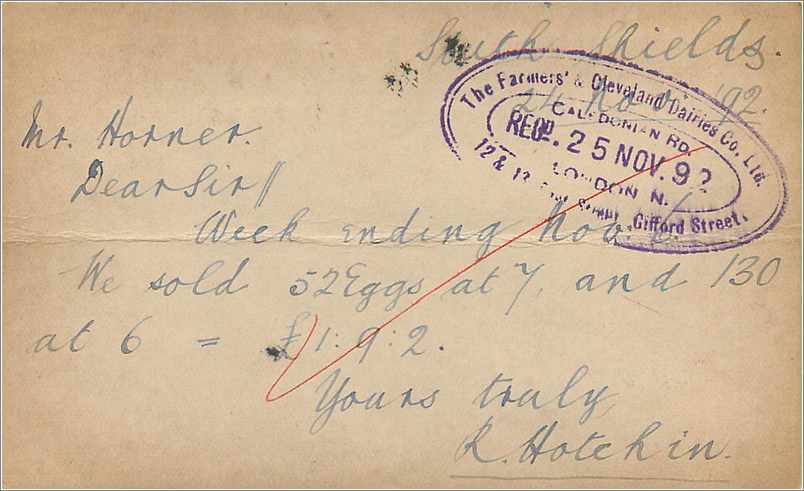 South Shields.
24 Nov. '92.
The Farmers' & Cleveland Dairies Co. Ltd.
CALEDONIAN RD.
RECD. 25 NOV. 92
LONDON N.
12 & Gifford Street.
Mr. Horner.
Dear Sir //
Week ending Nov.
We sold 52 Eggs at 7, and 130
at 6 = £1:9:2.
Yours truly
R. Hotchin.